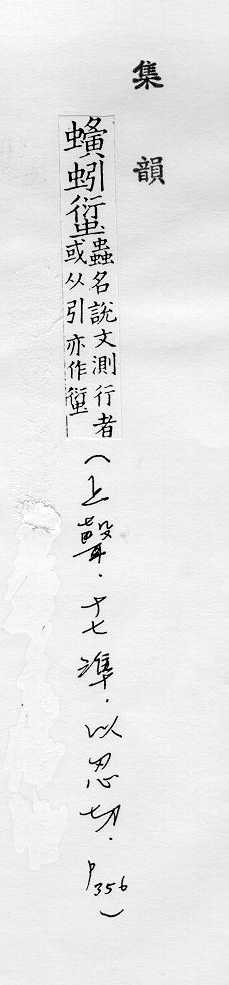 集韻
螾蚓䘆
蟲名說文測行者
或从引亦作䘆
（上聲．十七準．以忍切．P356）